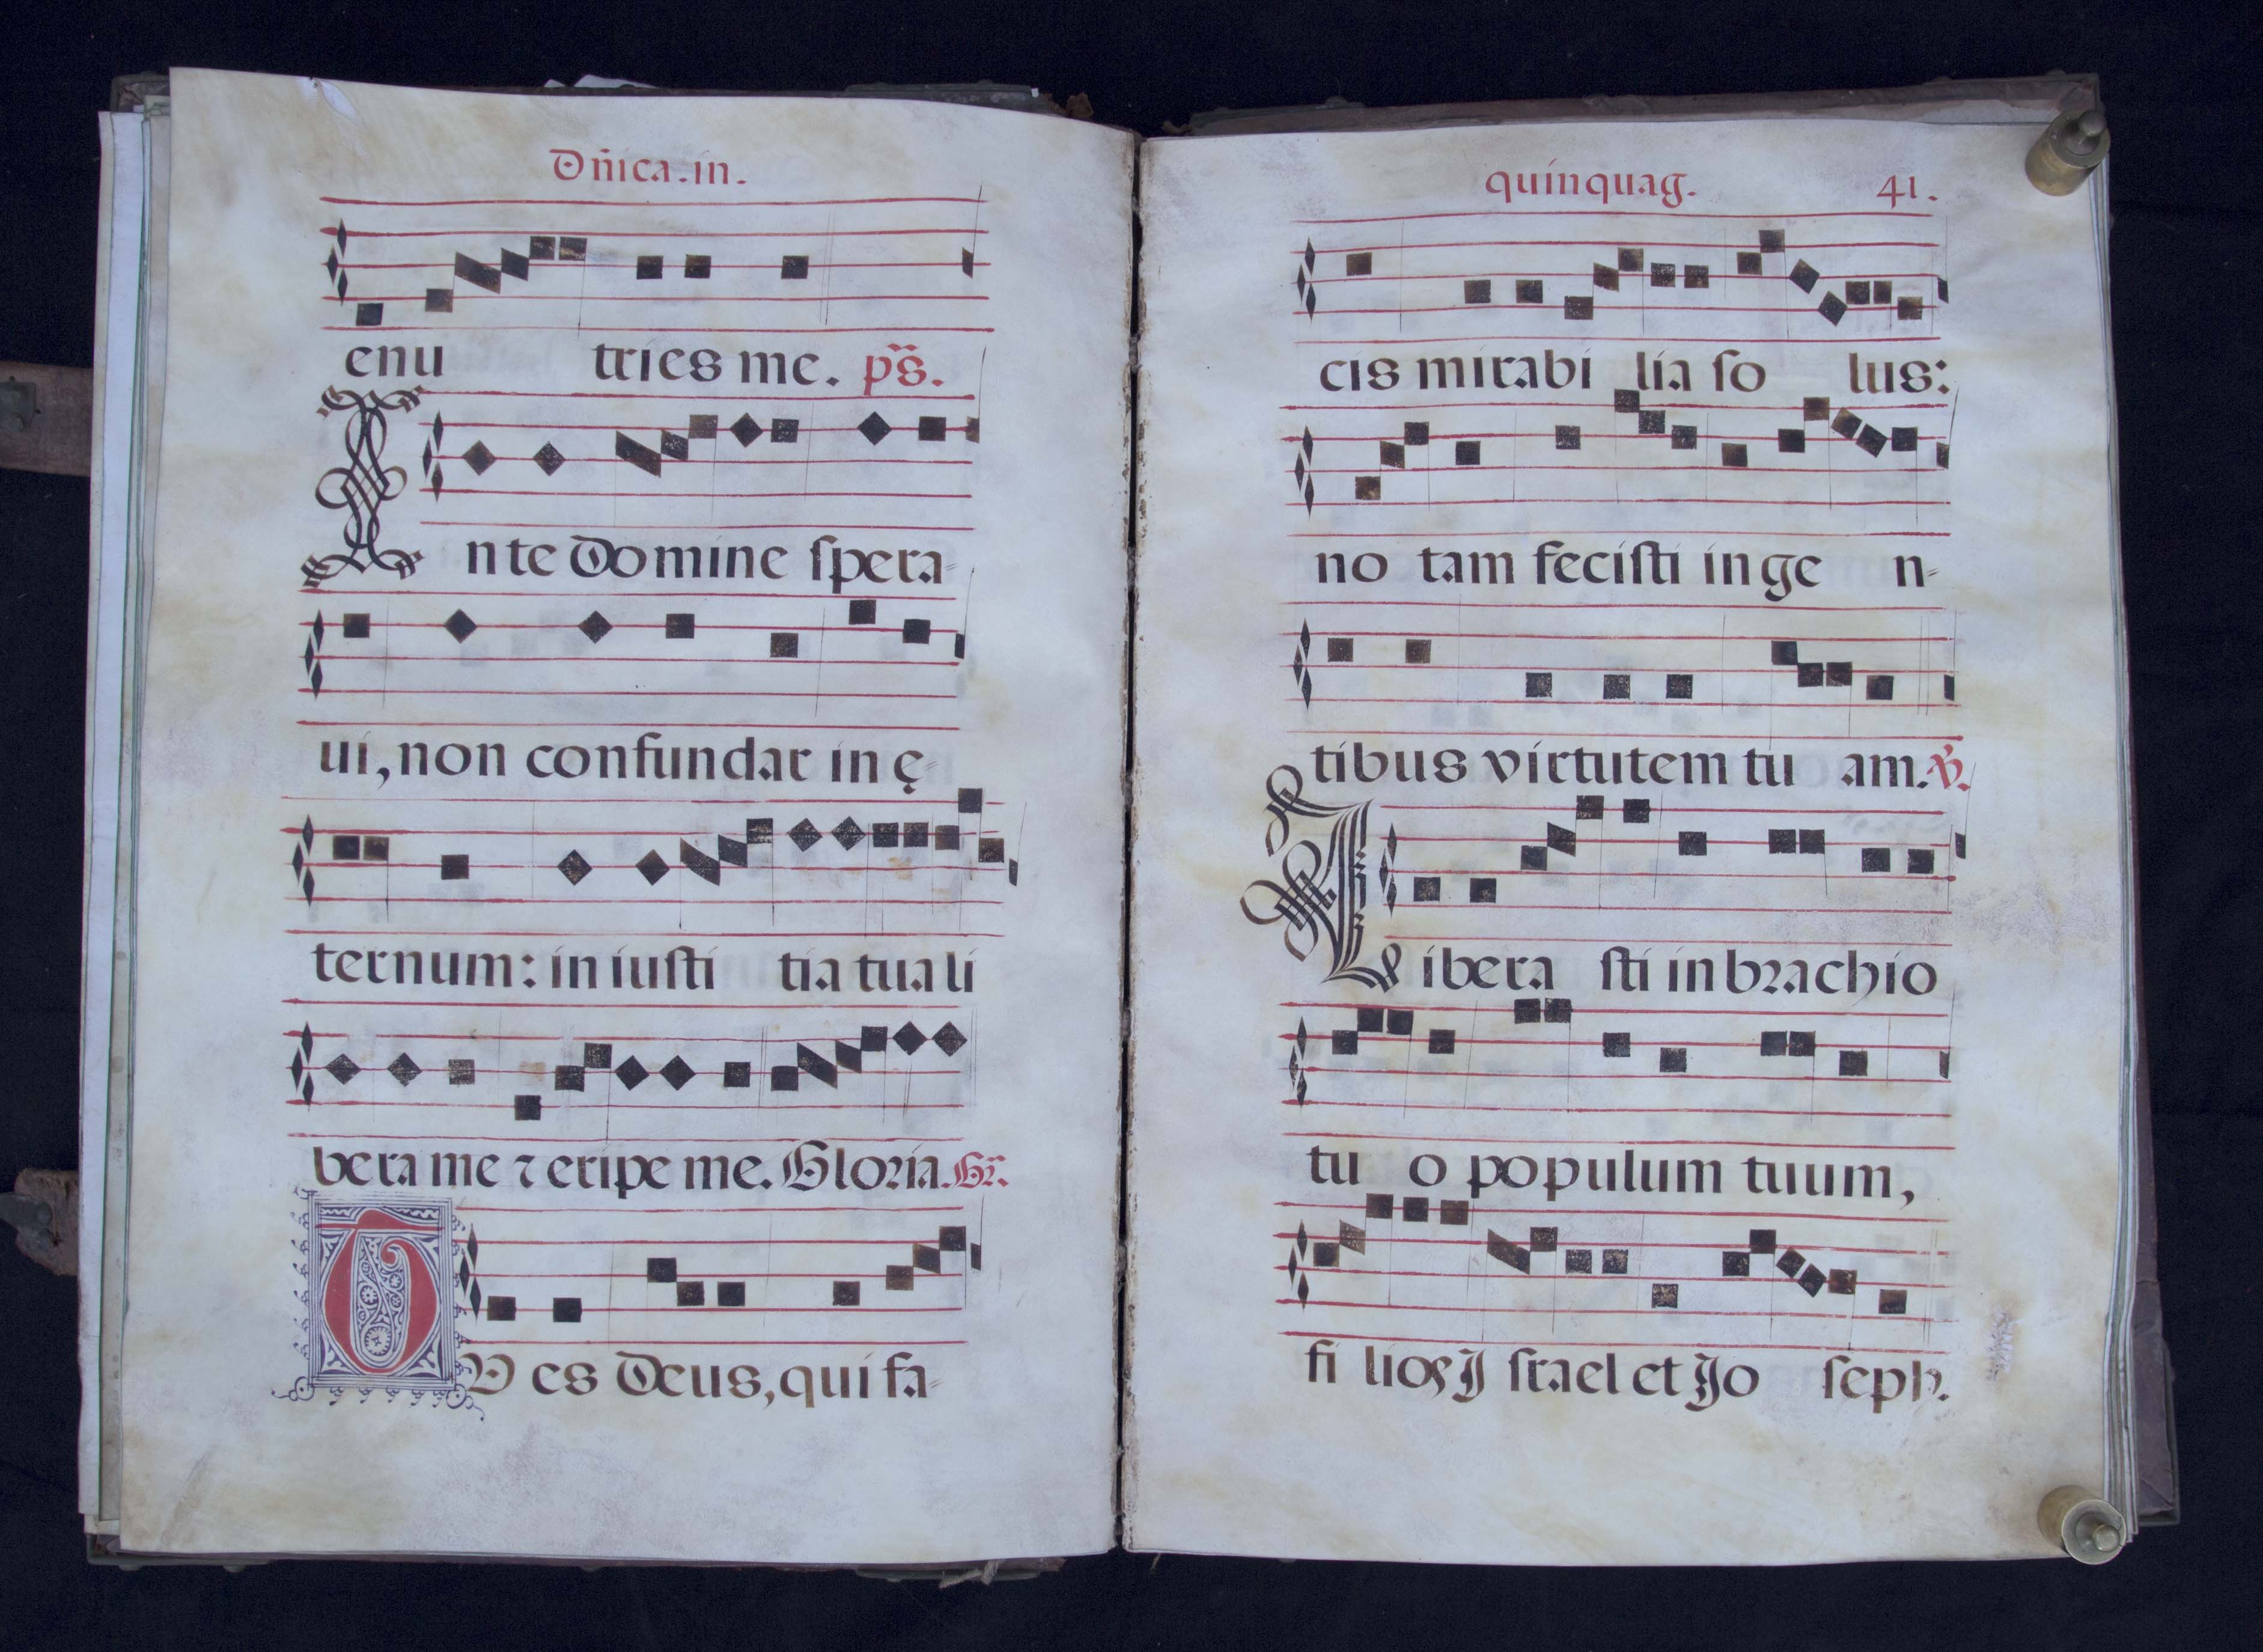 Dñica. in.
enu tries me. ps̃.
In te Domine ſpera-
ui, non confundar in ę-
ternum: in iuſti tia tua li
bera me ⁊ eripe me. Gloria. Gr̃.
TV es Deus, qui fa-
quinquag. 41.
cis mirabi lia ſo lus:
no tam feciſti in ge n-
tibus virtutem tu am. ℣.
Libera ſti in bꝛachio
tu o populum tuum,
fi lios Iſrael et Jo ſeph.